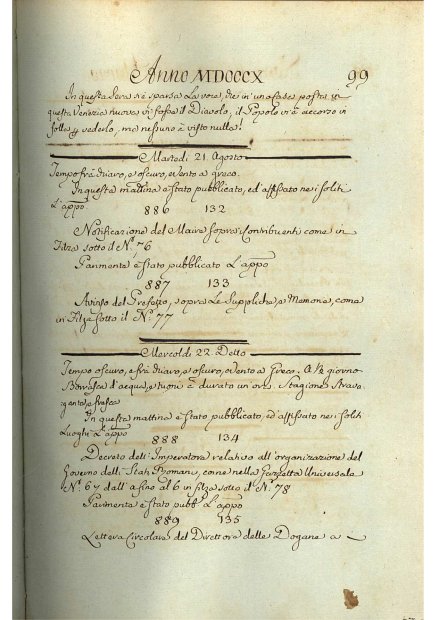 Anno MDCCCX 99
In questa sera s'è sparsa la voce, che in una casa posta in
questa Venezia nuova vi fosse il Diavolo, il Popolo vi è accorso in
folla p vederlo, ma nessuno è visto nulla!
Martedì 21. Agosto
Tempo frà chiaro, e oscuro, e vento a greco.
In questa mattina è stato pubblicato, ed affissato nei soliti
L'appo
886 132
Notificazione del Maire sopra i Contribuenti come in
Filza sotto il N.º 76
Parimente è stato pubblicato L'appo
887 133
Avviso del Prefetto, sopra le Suppliche, e Memorie, come
in Filza sotto il N.º 77
Mercoldì 22. Detto
Tempo oscuro, e frà chiaro, e oscuro, e vento a Greco. A ½ giorno
Borrasca d'acqua, e tuoni è durato un ora. Stagione strava
gante, e fresca
In questa mattina è stato pubblicato, ed affissato nei soliti
Luoghi L'appo
888 134
Decreto dell'Imperatore relativo all'organizazione del
Governo delli Stati Romani, come nella Gazzetta Universale
N.º 67 dall' a fino al 6 in filza sotto il N.º 78
Parimente è stato pubb.º L'appo
889 135
Lettera Circolare del Direttore delle Dogane a